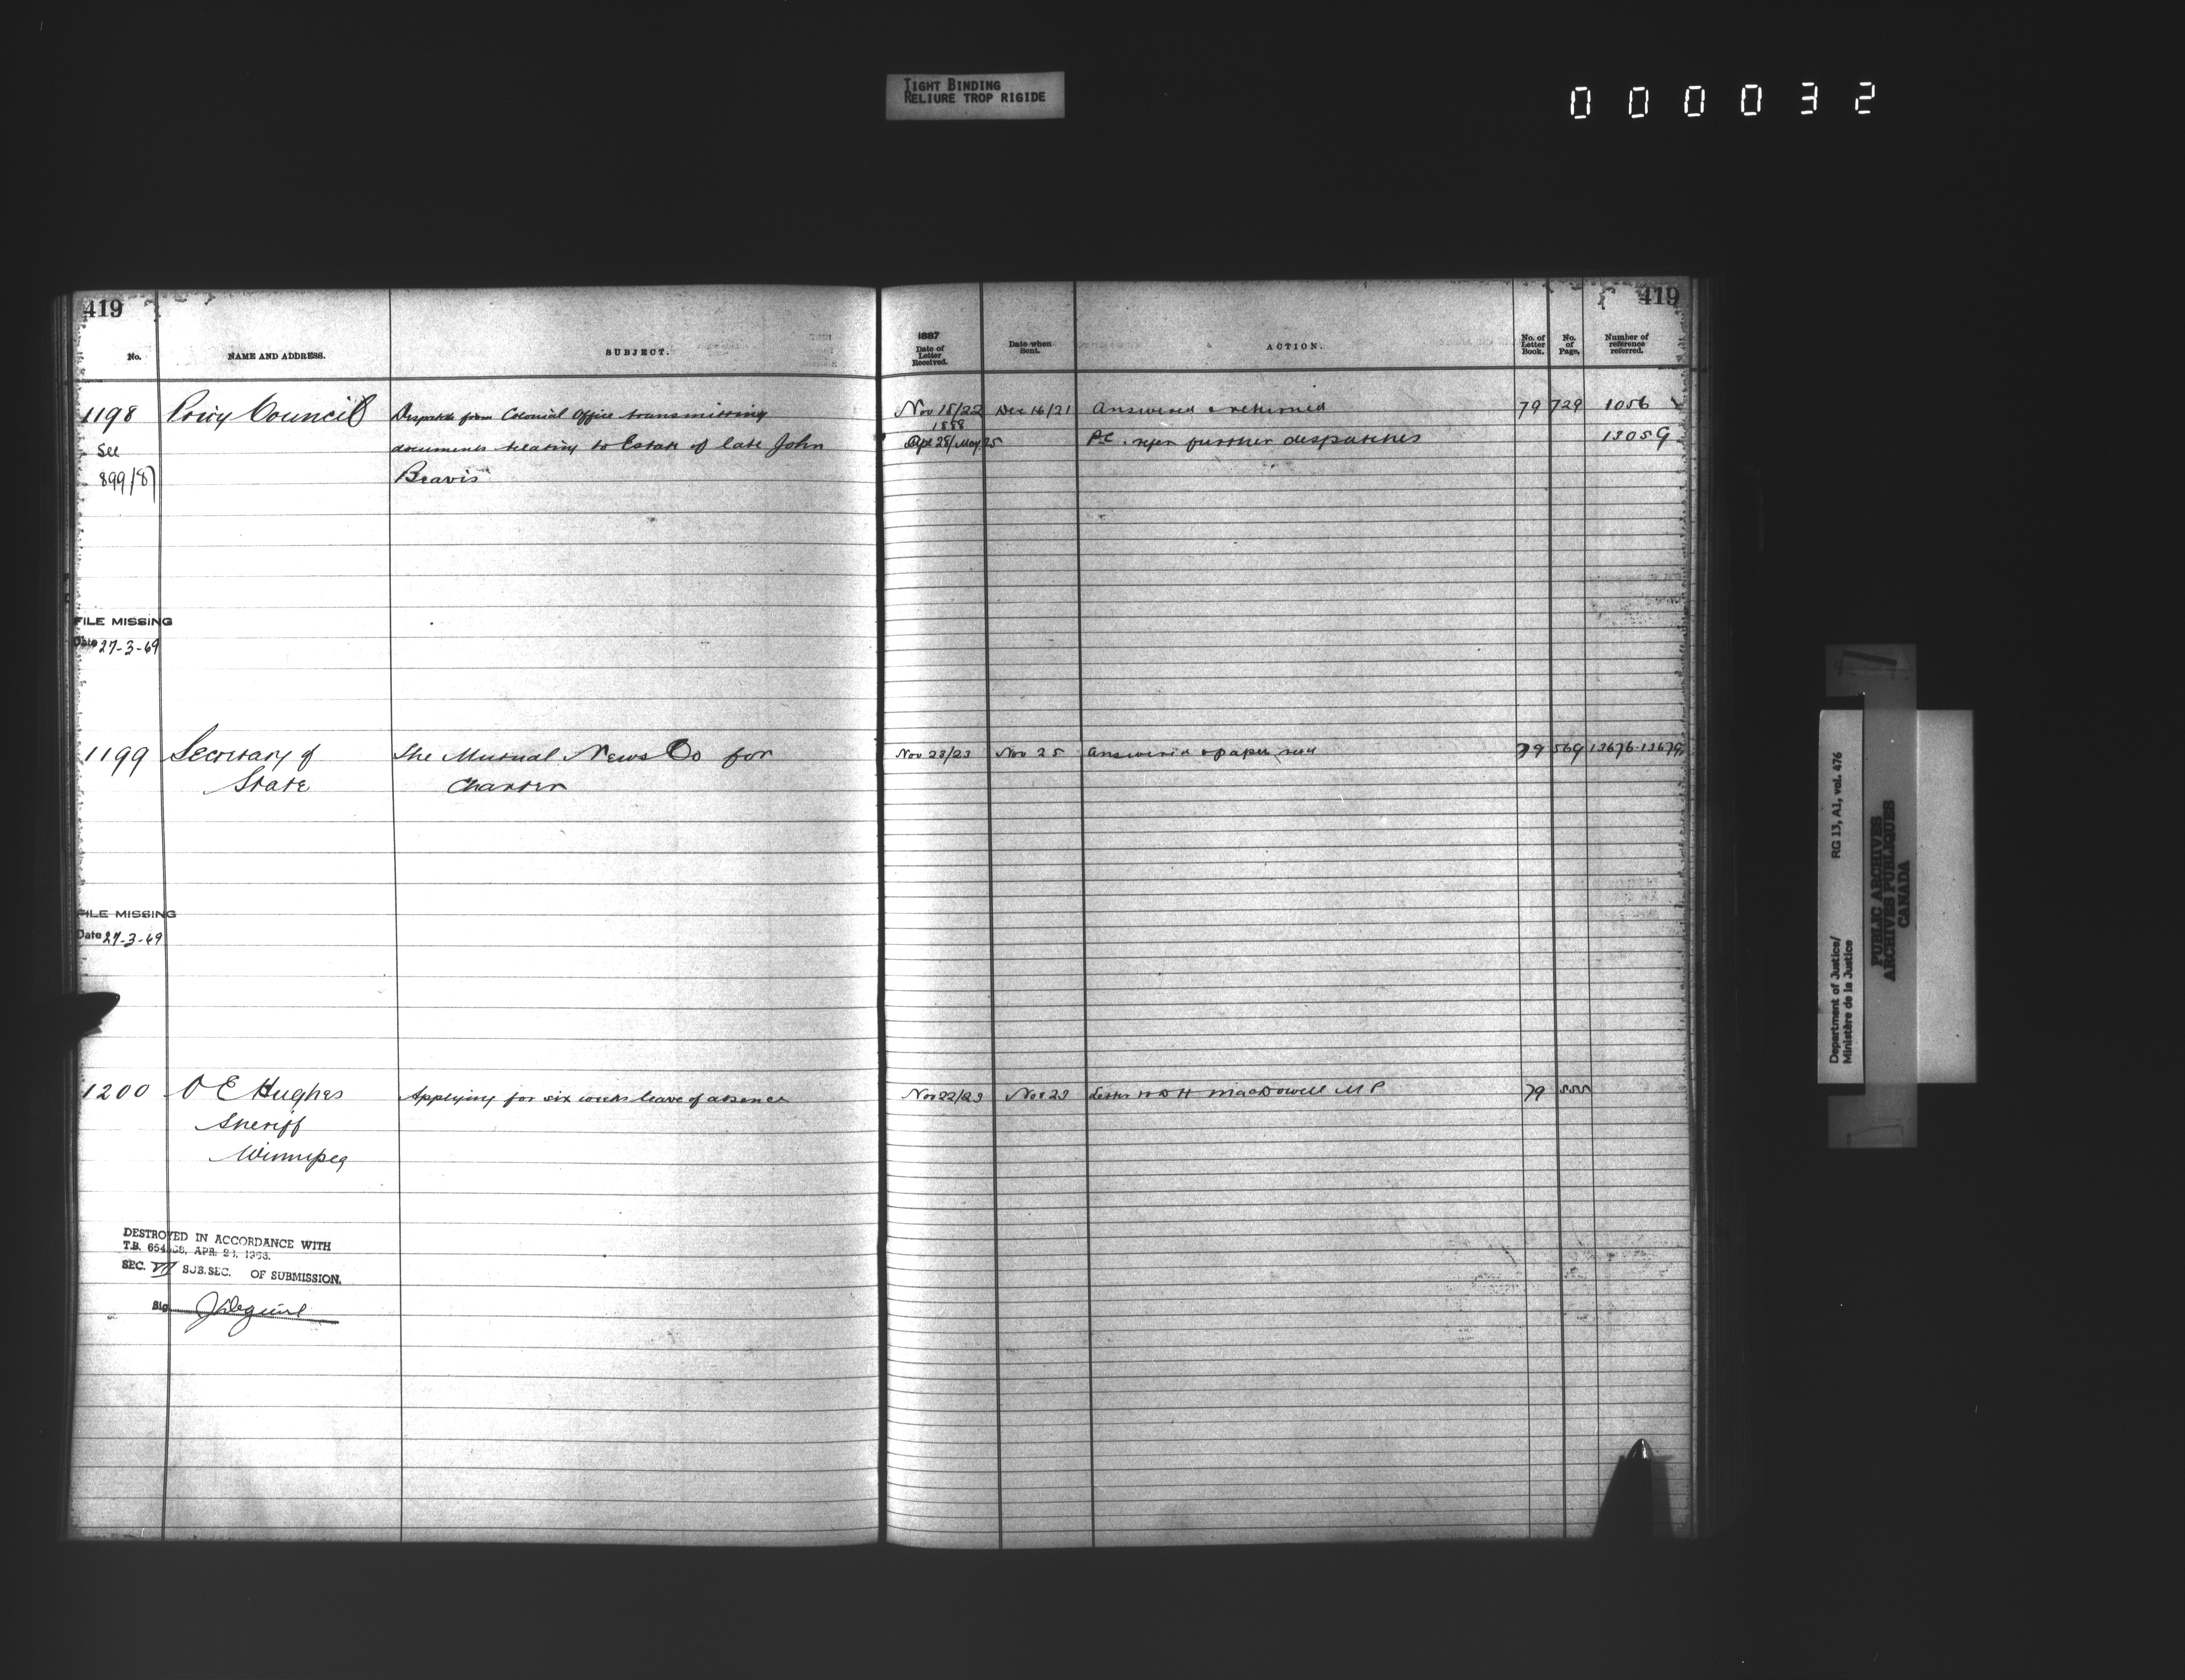 TIGHT BINDING
RELIURE TROP RIGIDE
000032
419
No.
NAME AND ADDRESS.
SUBJECT.
1198 Privy Council Despatch from Colonial Office transmitting
See documents relating to Estate of late John
899/87 Bravis
FILE MISSING
Date 27-3-69
1199 Secretary of The Mutual News Co for
State Charter
FILE MISSING
Date 27-3-69
1200 O E Hughes Applying for six weeks leave of absence
Sheriff
Winnipeg
DESTROYED IN ACCORDANCE WITH
T.B. APR. 1963.
SEC. VII SUB.SEC. OF SUBMISSION.
Sig
419
1887
Date of Letter Received.
Date when Sent.
ACTION.
No. of Letter Book.
No. of Page.
Number of reference referred.
Nov 18/22 Dec 16/21 Answered & returned 79 729 1056
1888
Apl 28/May 25 P.C. refer further despatches 13059
Nov 23/23 Nov 25 Answered & paper retd 79 569 13676-13679
Nov 22/23 Nov 23 Letter to D H MacDowell M P 79 555
Department of Justice/ RG 13, A1, vol. 476
Ministère de la Justice
PUBLIC ARCHIVES
ARCHIVES PUBLIQUES
CANADA